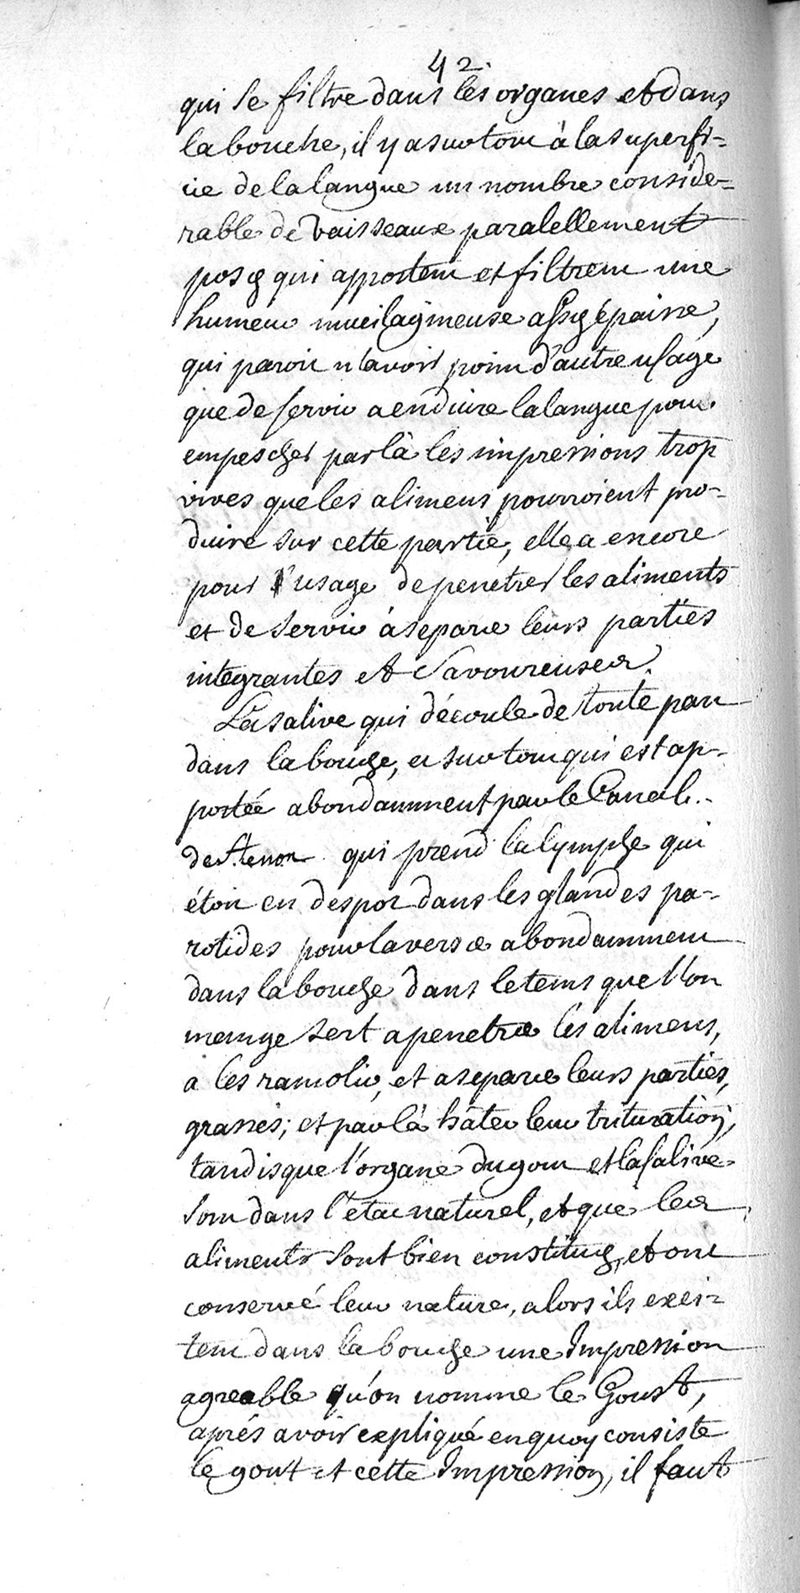 42.
qui se filtre dans les organes et dans
la bouche, il y a surtout à la superfi=
cie de la langue un nombre conside=
rable de vaisseaux paralellement
posez qui apportent et filtrent une
humeur mucilagineuse assez épaisse,
qui paroit n'avoir point d'autre usage
que de servir a enduire la langue pour
empescher par là les impressions trop
vives que les alimens pourroient pro=
duire sur cette partie, elle a encore
pour l'usage de penetrer les aliments
et de servir à separer leurs parties
integrantes et savoureuses.
La salive qui découle de toute part
dans la bouche, et surtout qui est ap=
portée abondamment par le Canal
de Stenon qui prend la lymphe qui
étoit en despot dans les glandes pa=
rotides pour la verser abondamment
dans la bouche dans le tems que l'on
mange sert a penetrer les alimens,
a les ramolir, et a separer leurs parties,
grasses; et par là hâter leur trituration,
tandis que l'organe du gout et la salive
sont dans l'état naturel, et que les
aliments sont bien constituez, et ont
conservé leur nature, alors ils exci=
tent dans la bouche une Impression
agreable qu'on nomme le Goust,
aprés avoir expliqué en quoy consiste
le gout et cette Impression, il faut